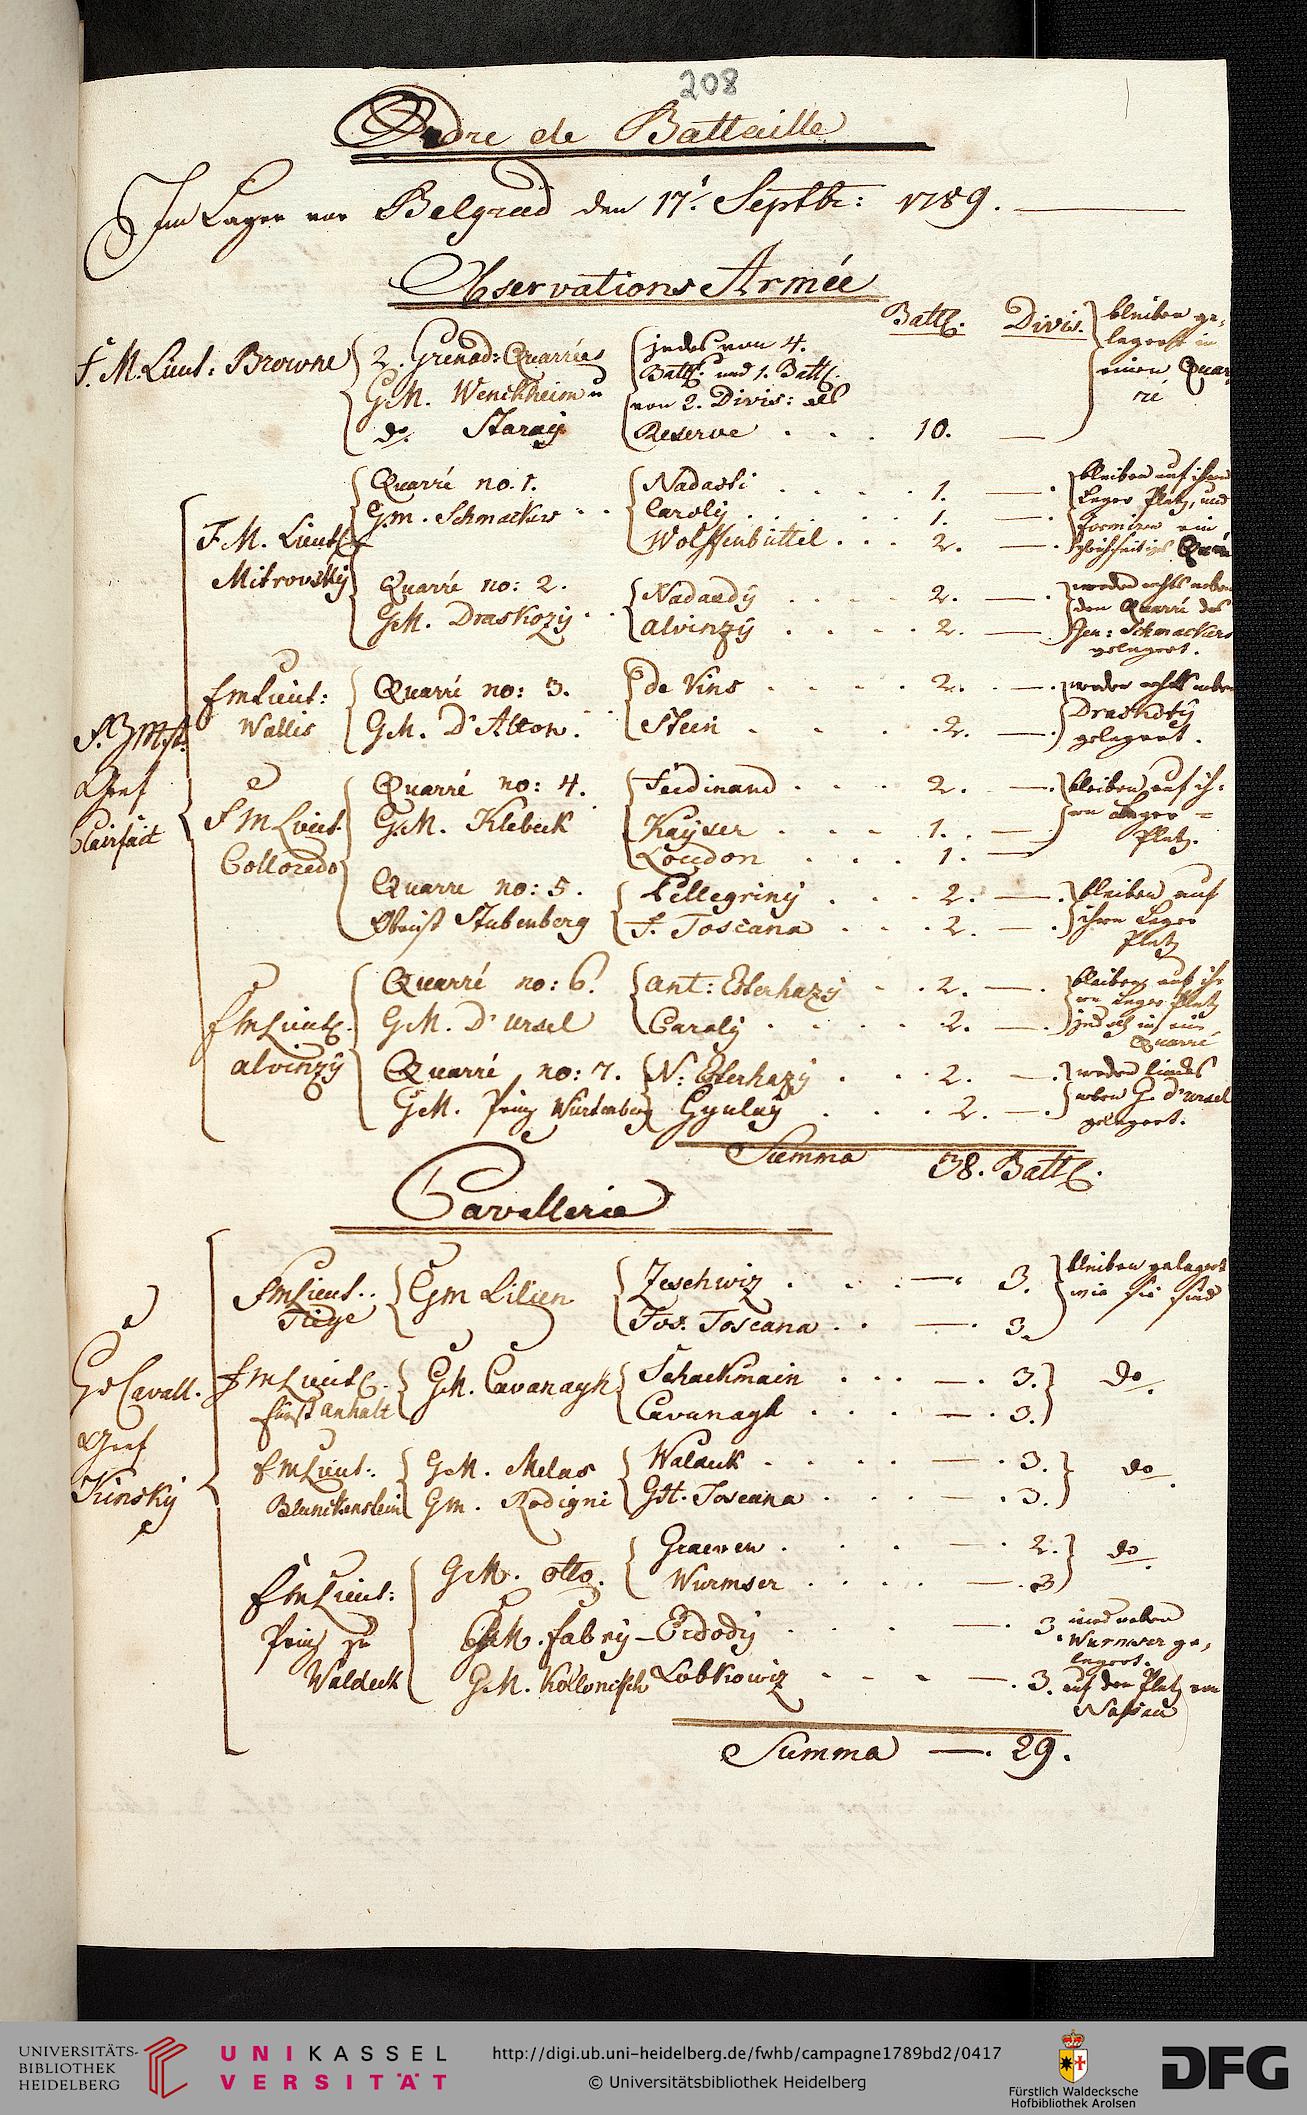 208
Ordre de Battaille
Im Lager vor Belgrad den 17t. Septbr: 1789.
Observations Armée
Battl. Divis.
F. M. Lieut: Browne
2. Grenad: Quarrées
G.M. Wenckheim u
do. Staray
jedes von 4.
Battl: und 1. Battl.
von 2. Divis: als
Reserve . . . 10. —
bleiben ge-
lagert in
einen Quar-
ré
F. Z. Mstr.
Graf
Clairfait
F. M. Lieutt.
Mitrovsky
Quarré no. 1.
G.m. Schmackers
Nadasti . . . . 1. —
Caroly . . . . 1. —
Wolffenbüttel . . . 2. —
bleiben auf ihren
Lager Platz, und
formiren ein
Quarré
Quarré no: 2.
G.M. Draskozy
Nadasdy . . . . 2. —
Alvinzy . . . . 2. —
werden rechts neben
den Quarré des
Gen: Schmackers
gelagert.
FmLieut:
Wallis
Quarré no: 3.
G.M. D'Alton.
de Vins . . . . 2. —
Stein . . . . 2. —
werden rechts neben
Draskozy
gelagert.
F M Lieut.
Colloredo
Quarré no: 4.
G.M. Klebeck
Ferdinand . . . 2. —
Kayser . . . 1. —
Loudon . . . 1. —
bleiben auf ih-
ren Lager =
Platz.
Quarre no: 5.
Obrist Stubenberg
Pellegriny . . . 2. —
F. Toscana . . . 2. —
bleiben auf
ihren Lager
Platz
FMLieutt.
Alvinzy
Quarré no: 6.
G.M. D'Ursel
Ant: Esterhazy . . 2. —
Caroly . . . . 2. —
bleiben auf ih-
ren Lager Platz
jedoch in ein
Quarré
Quarré no: 7.
G.M. Prinz Würtemberg
N: Esterhazy . . . 2. —
Gyulay . . . 2. —
werden lincks
neben G. d'Ursel
gelagert.
Summa 38. Battl.
Cavallerie
G. d Cavall.
Graf
Kinsky
FMLieut:
Tiege
Gm Lilien
Zeschwiz . . . — 3.
Jos. Toscana . . — 3.
bleiben gelagert
wie sie sind
F M Lieutt.
Fürst Anhalt
G.M. Cavanagh
Schackmain . . . — 3.
Cavanagh . . . — 3.
do.
FMLieut:
Blanckenstein
G.M. Melas
Gm. Rodigni
Waldeck . . . . — 3.
GH. Toscana . . . — 3.
do.
FMLieut:
Prinz zu
Waldeck
G.M. Otto.
Graeven . . . — 2.
Wurmser . . . . — 3
do.
G.M. Fabry — Erdödy . . . . — 3.
und neben
Wurmser ge-
lagert.
G.M. Kollonitsch Lobkowiz . . . — 3.
auf den Platz von
Nassau
Summa — 29.
UNIVERSITÄTS-
BIBLIOTHEK
HEIDELBERG
UNIKASSEL
VERSITÄT
http://digi.ub.uni-heidelberg.de/fwhb/campagne1789bd2/0417
© Universitätsbibliothek Heidelberg
Fürstlich Waldecksche
Hofbibliothek Arolsen
DFG